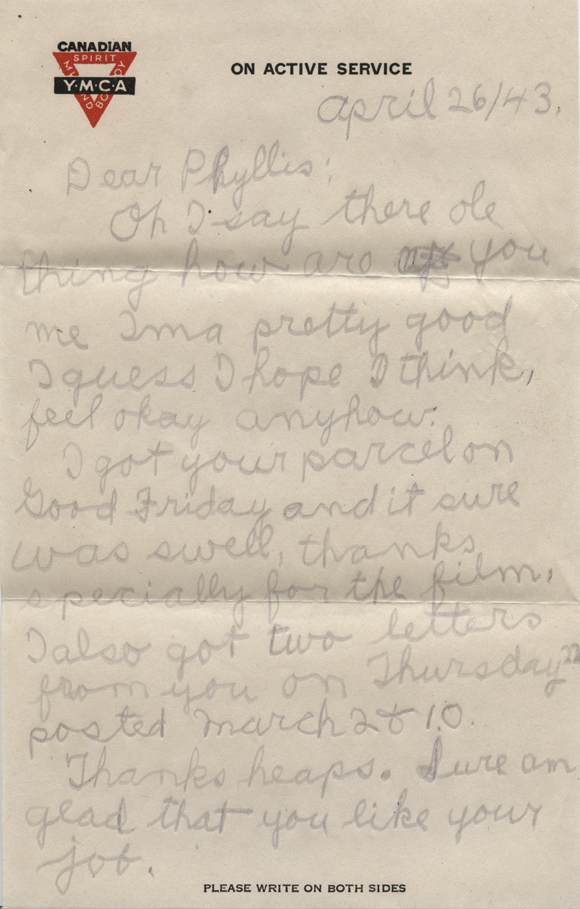 CANADIAN
SPIRIT
MIND
BODY
Y·M·C·A
ON ACTIVE SERVICE
April 26/43.
Dear Phyllis:
Oh I say there ole
thing how are you
me Ima pretty good
I guess I hope I think,
feel okay anyhow.
I got your parcel on
Good Friday and it sure
was swell, thanks
specially for the film,
I also got two letters
from you on Thursday 22
posted March 2 & 10.
Thanks heaps. Sure am
glad that you like your
job.
PLEASE WRITE ON BOTH SIDES